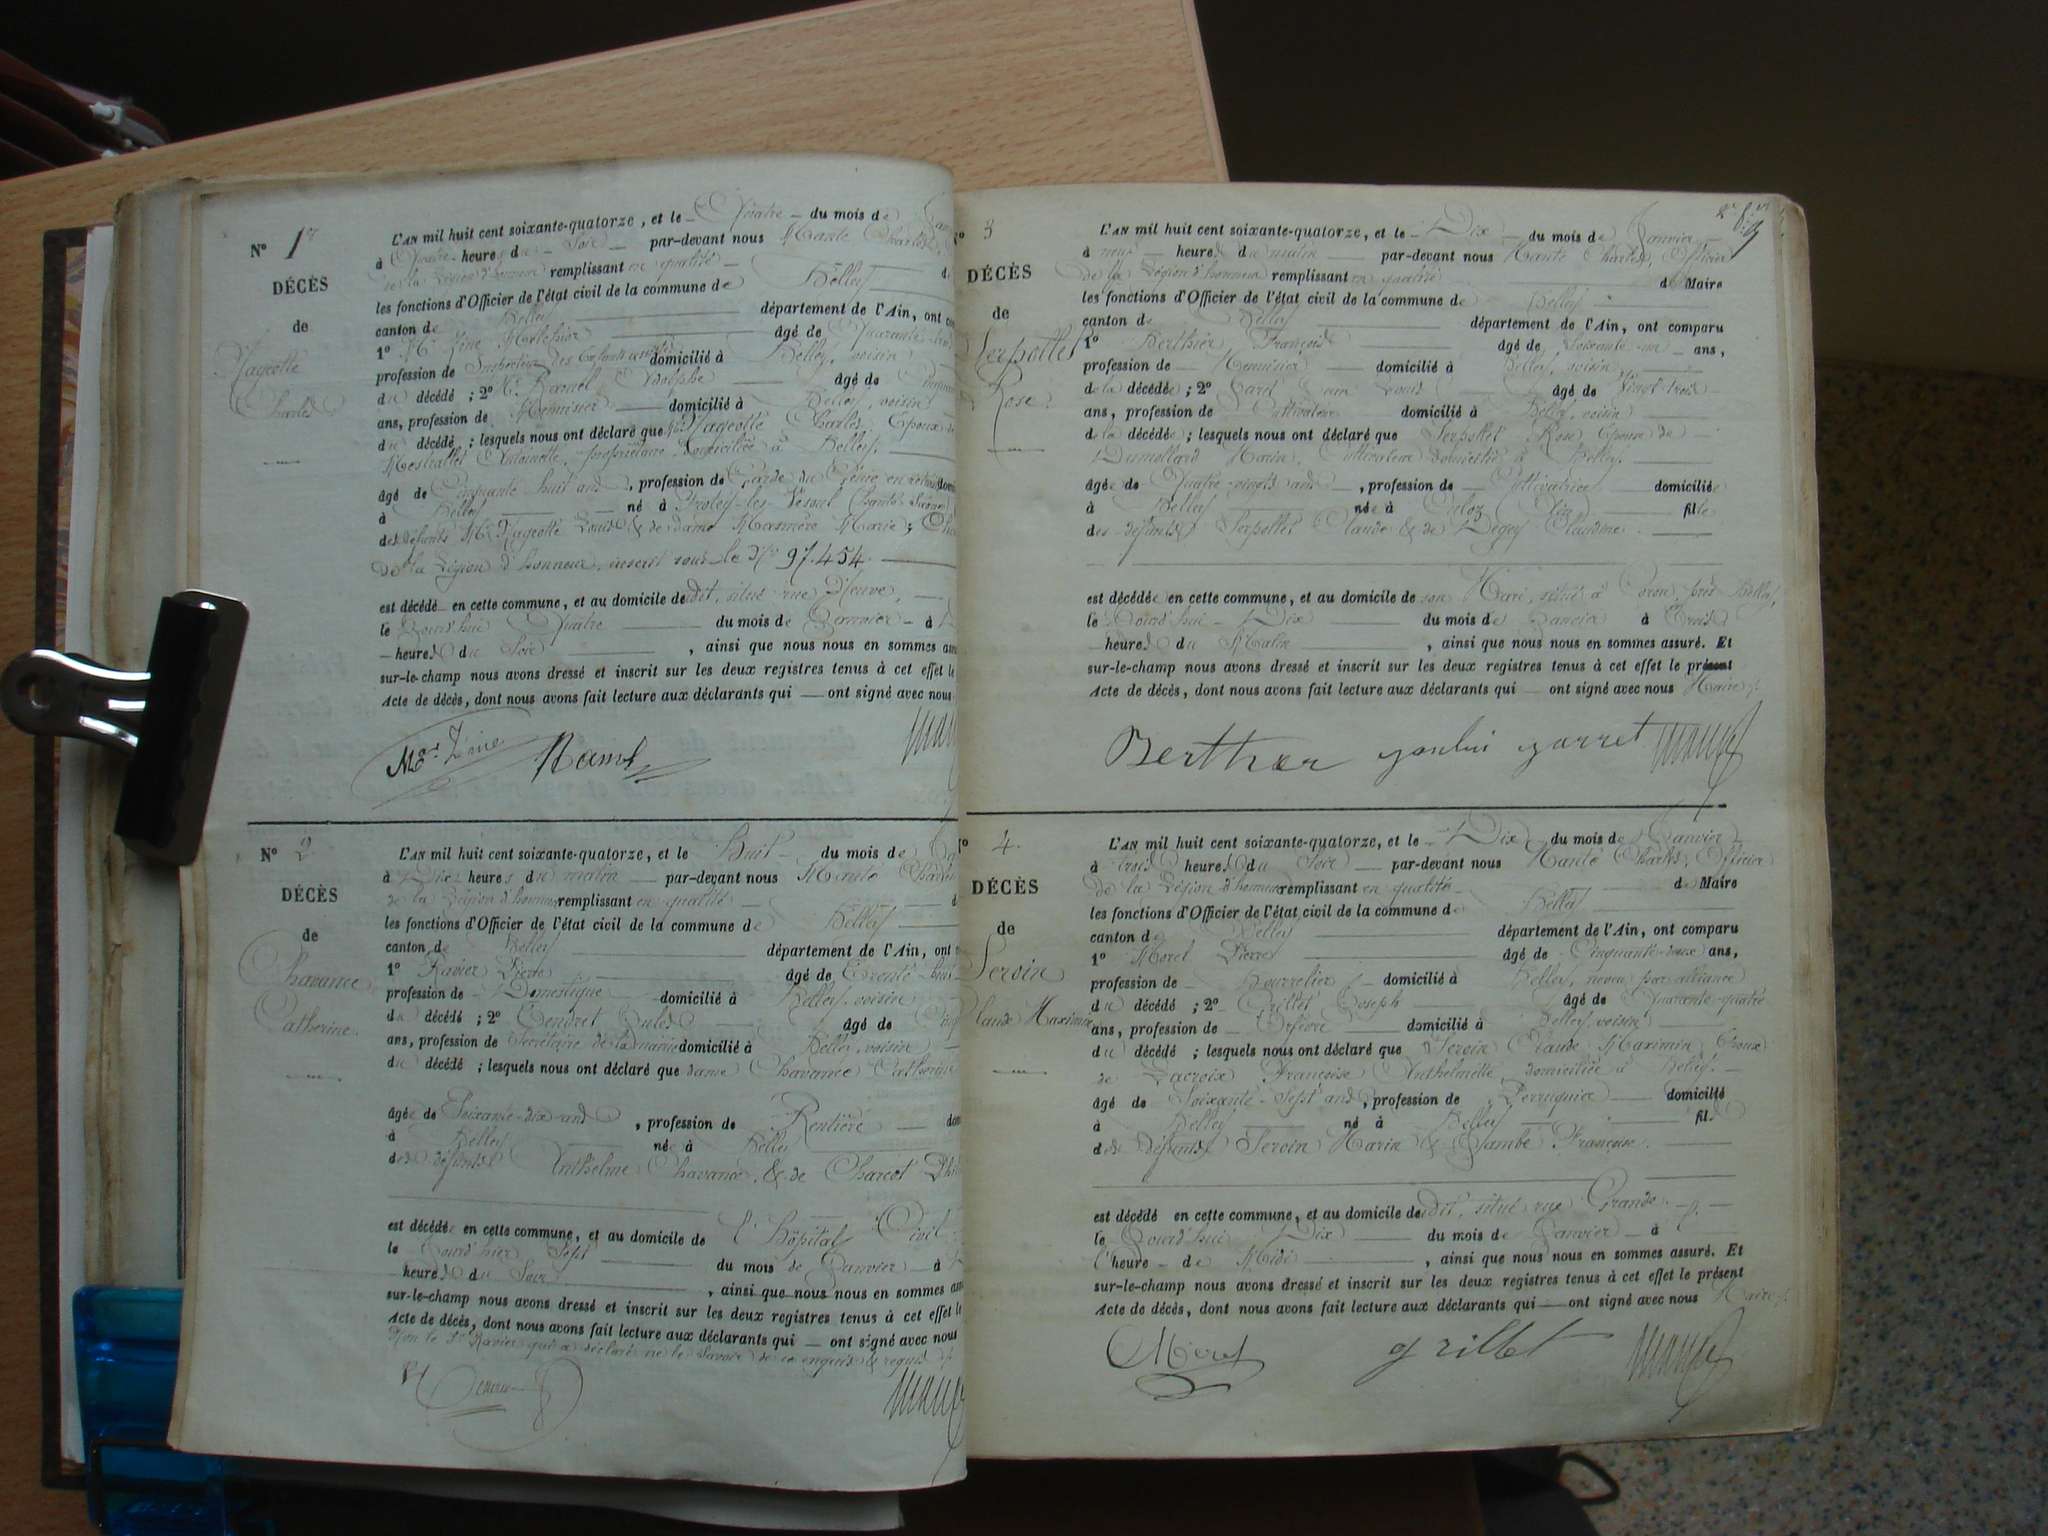 N° 1er
DÉCÈS
de
Nageotte
Charles
L'AN mil huit cent soixante-quatorze, et le Quatre du mois de
à Quatre heures du Soir par-devant nous Manté Charles,
de la Légion d'honneur remplissant en qualité
les fonctions d'Officier de l'état civil de la commune de Belley
canton de Belley département de l'Ain, ont
1° Mr âgé de Quarante
profession de domicilié à Belley, voisin
du décédé ; 2° Mr Adolphe âgé de
ans, profession de Menuisier domicilié à Belley, voisin
du décédé ; lesquels nous ont déclaré que Mr Nageotte Charles, Époux de
Antoinette, propriétaire domiciliée à Belley.
âgé de Cinquante huit ans, profession de Garde du Génie en retraite
à Belley né à Haute-Saône
des défunts Mr Nageotte Louis & de dame Marie ;
de la Légion d'honneur, inscrit sous le No 97.454.
est décédé en cette commune, et au domicile de dit, situé rue Neuve,
le Jourd'hui Quatre du mois de Janvier à
heures du Soir, ainsi que nous nous en sommes
sur-le-champ nous avons dressé et inscrit sur les deux registres tenus à cet effet le
Acte de décès, dont nous avons fait lecture aux déclarants qui — ont signé avec nous
N° 2
DÉCÈS
de
Chavance
Catherine
L'AN mil huit cent soixante-quatorze, et le Huit du mois de
à Dix heures du matin par-devant nous Manté
de la Légion d'honneur remplissant en qualité
les fonctions d'Officier de l'état civil de la commune de Belley
canton de Belley département de l'Ain, ont
1° Ravier Pierre âgé de Trente-huit
profession de Domestique domicilié à Belley, voisin
du décédé ; 2° Tendret Jules âgé de
ans, profession de Secrétaire de la mairie domicilié à Belley, voisin
du décédé ; lesquels nous ont déclaré que dame Chavance Catherine
âgée de Soixante-dix ans, profession de Rentière
à Belley née à Belley
des défunts Anthelme Chavance, & de Charcot
est décédée en cette commune, et au domicile de l'Hôpital Civil
le Jourd'hier Sept du mois de Janvier à
heures du Soir, ainsi que nous nous en sommes
sur-le-champ nous avons dressé et inscrit sur les deux registres tenus à cet effet le
Acte de décès, dont nous avons fait lecture aux déclarants qui — ont signé avec nous
Non le Sr Ravier qui a déclaré ne le savoir de ce enquis & requis
3
DÉCÈS
de
Serpollet
Rose
L'AN mil huit cent soixante-quatorze, et le Dix du mois de Janvier
à neuf heures du matin par-devant nous Manté Charles, Officier
de la Légion d'honneur remplissant en qualité de Maire
les fonctions d'Officier de l'état civil de la commune de Belley
canton de Belley département de l'Ain, ont comparu
1° Berthier François âgé de Soixante-un ans,
profession de Menuisier domicilié à Belley, voisin
de la décédée ; 2° Louis âgé de Vingt-trois
ans, profession de Cultivateur domicilié à Belley, voisin
de la décédée ; lesquels nous ont déclaré que Serpollet Rose Épouse de
Dumollard Marin, Cultivateur domicilié à Belley.
âgée de Quatre-vingts ans, profession de Cultivatrice domiciliée
à Belley née à Culoz (Ain) fille
des défunts Serpollet Claude & de Claudine.
est décédée en cette commune, et au domicile de son Mari, situé à près Belley,
le Jourd'hui Dix du mois de Janvier à Trois
heures du Matin, ainsi que nous nous en sommes assuré. Et
sur-le-champ nous avons dressé et inscrit sur les deux registres tenus à cet effet le présent
Acte de décès, dont nous avons fait lecture aux déclarants qui — ont signé avec nous Maire.
Berthier
4
DÉCÈS
de
Seroin
Claude Maximin
L'AN mil huit cent soixante-quatorze, et le Dix du mois de Janvier
à trois heures du Soir par-devant nous Manté Charles, Officier
de la Légion d'honneur remplissant en qualité de Maire
les fonctions d'Officier de l'état civil de la commune de Belley
canton de Belley département de l'Ain, ont comparu
1° Morel Pierre âgé de Cinquante-deux ans,
profession de Bourrelier domicilié à Belley, neveu par alliance
du décédé ; 2° Grillet Joseph âgé de Quarante-quatre
ans, profession de Orfèvre domicilié à Belley, voisin
du décédé ; lesquels nous ont déclaré que Seroin Claude Maximin Époux
de Lacroix Françoise Anthelmette, domiciliée à Belley.
âgé de Soixante-Sept ans, profession de Perruquier domicilié
à Belley né à Belley fils
des défunts Seroin Marin & Jambe Françoise.
est décédé en cette commune, et au domicile de dit, situé rue Grande.
le Jourd'hui Dix du mois de Janvier à
l'heure de Midi, ainsi que nous nous en sommes assuré. Et
sur-le-champ nous avons dressé et inscrit sur les deux registres tenus à cet effet le présent
Acte de décès, dont nous avons fait lecture aux déclarants qui — ont signé avec nous Maire.
Morel grillet